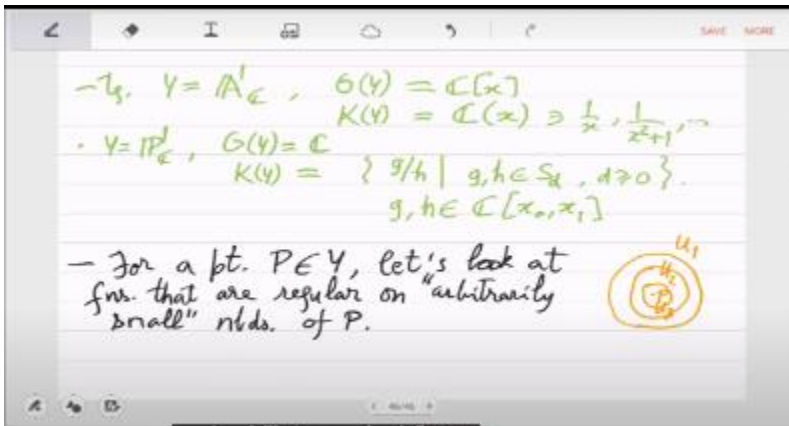 SAVE MORE
- Eg. Y = 𝔸¹_ℂ , O(Y) = ℂ[x]
K(Y) = ℂ(x) ∋ 1/x , 1/(x²+1) , ...
· Y = ℙ¹_ℂ , O(Y) = ℂ
K(Y) = { g/h | g, h ∈ S_d , d ≥ 0 }.
g, h ∈ ℂ[x₀, x₁]
- For a pt. P ∈ Y, let's look at
fns. that are regular on "arbitrarily
small" nbds. of P.
U₁
U₂
P
U₃